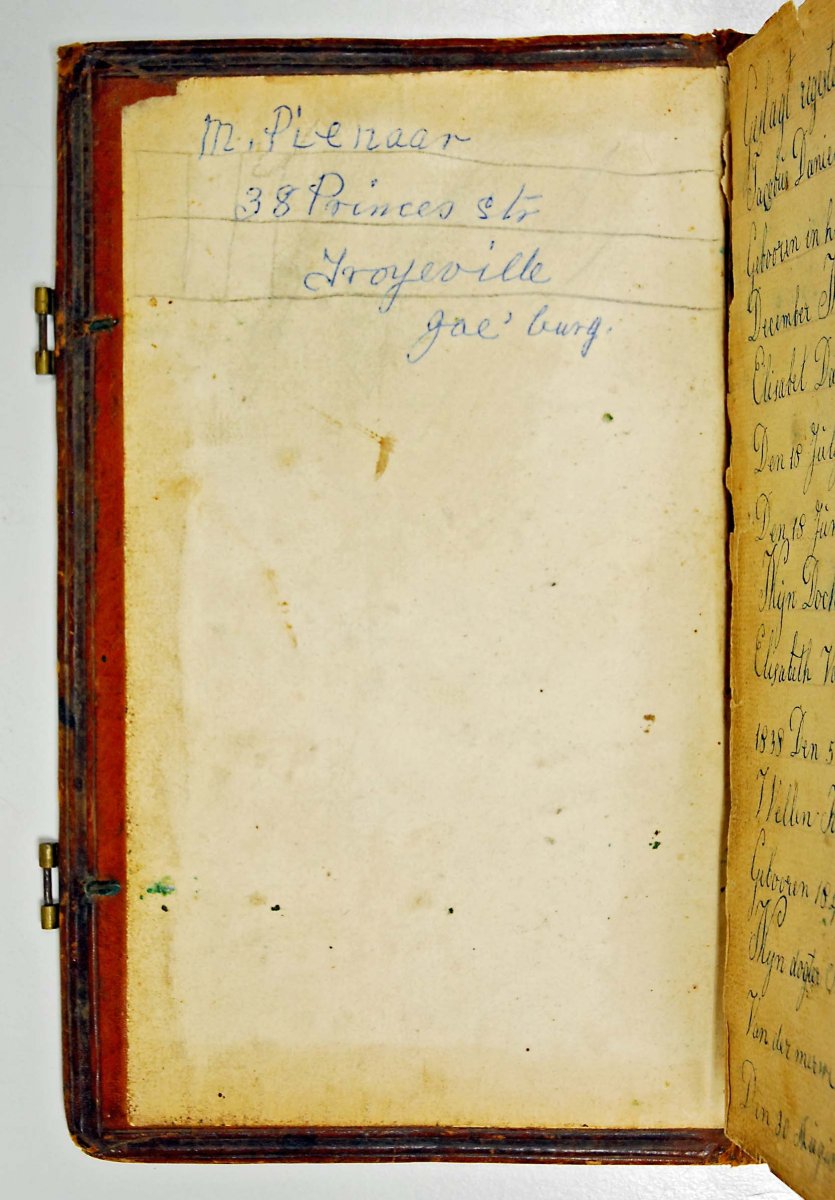 M. Pienaar
38 Princes str
Troyeville
Joe' burg.
Geslagt regist
Jacobus Danie
Gebooren in h
December
Elisabet Da
Den 18 Jul
Den 18 Jun
Myn Doch
Elisabeth Vo
1838 Den 5
Willem
Gebooren 18
Myn dogter
Van der merwe
Den 30 Augu